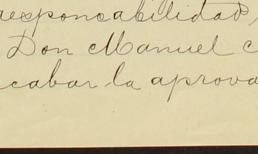 responsabilidad,
Don Manuel c
cabar la aprova